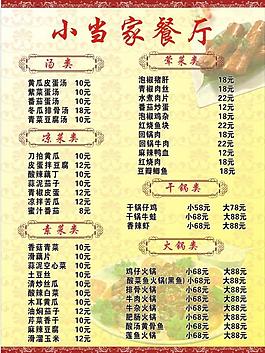 小当家餐厅
汤类
黄瓜皮蛋汤 10元
紫菜蛋汤 10元
番茄蛋汤 10元
冬瓜排骨汤 18元
青菜豆腐汤 10元
凉菜类
刀拍黄瓜 10元
皮蛋拌豆腐 12元
酸辣藕丁 10元
蒜泥茄子 10元
青椒皮蛋 12元
凉拌苦瓜 12元
蜜汁番茄 8元
素菜类
香菇青菜 10元
滑藕片 10元
蒜泥空心菜 10元
土豆丝 10元
清炒丝瓜 10元
酸辣白菜 10元
木耳黄瓜 10元
油焖茄子 12元
芹菜香干 10元
麻辣豆腐 10元
滑溜玉米 12元
荤菜类
泡椒猪肝 18元
青椒肉丝 18元
水煮肉片 22元
番茄炒蛋 12元
泡椒鸡杂 18元
红烧鱼块 22元
回锅肉 18元
回锅牛肉 22元
麻辣鸭血 12元
红烧肉 22元
豆瓣鲫鱼 18元
干锅类
干锅仔鸡 小58元 大78元
干锅牛蛙 小68元 大88元
香辣虾 小68元 大88元
火锅类
鸡仔火锅 小68元 大88元
酸菜鱼火锅(黑鱼) 小68元 大88元
排骨火锅 小68元 大88元
牛肉火锅 小68元 大88元
牛杂火锅 小68元 大88元
肥肠火锅 小68元 大88元
酸汤黄骨鱼 小68元 大88元
鱼火锅 小68元 大88元